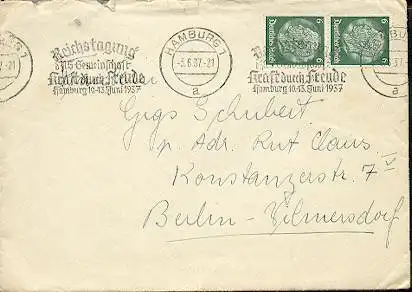 HAMBURG 1
-3.6.37.-21
a
Reichstagung
d. NS Gemeinschaft
Kraft durch Freude
Hamburg 10.-13. Juni 1937
6 Deutsches Reich 6
Deutsches Reich 6
Kraft durch Freude
Hamburg 10.-13. Juni 1937
Schubert
p. Adr. Rut Claus.
Konstanzerstr. 7 V
Berlin-Wilmersdorf